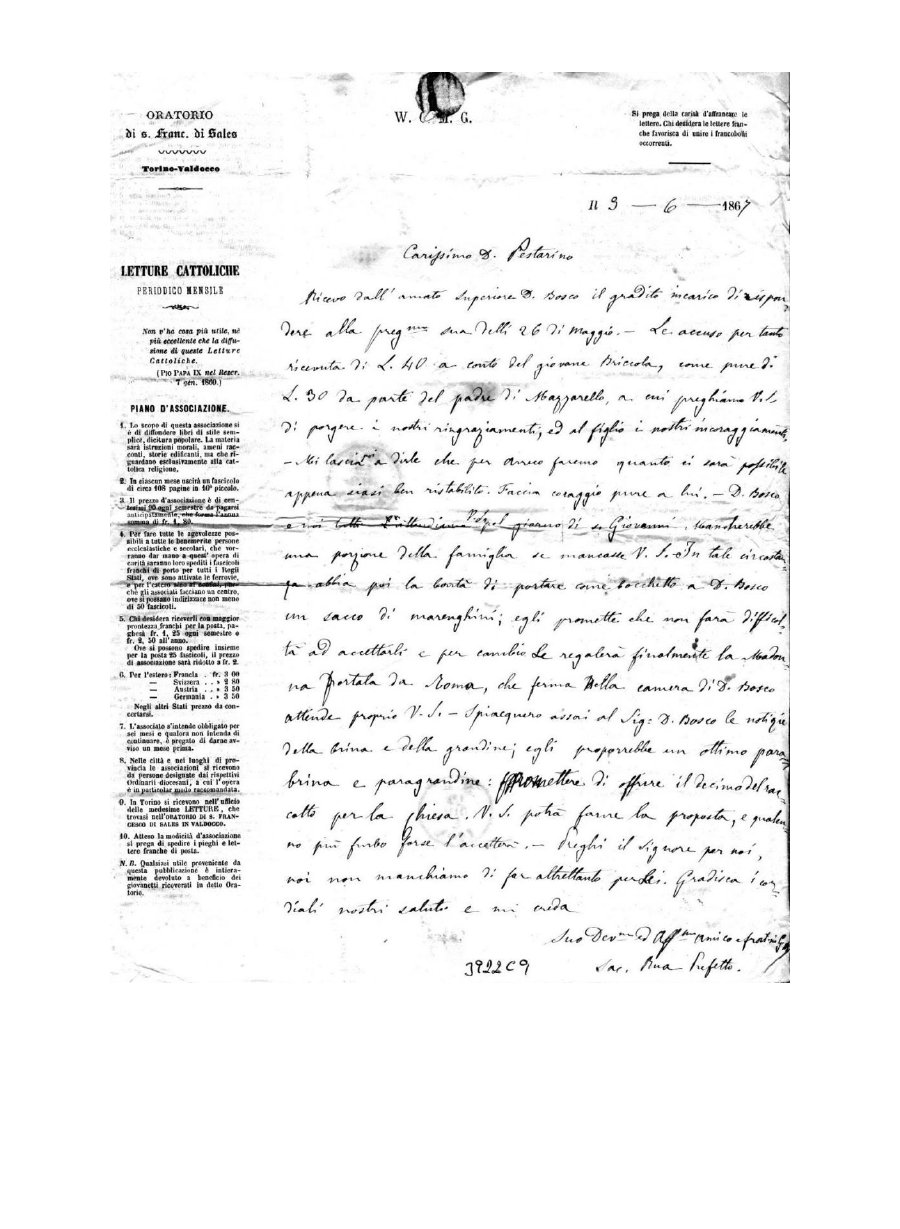 ORATORIO
di s. Franc. di Sales
Torino-Valdocco
W. G. M. G.
Si prega della carità d'affrancare le
lettere. Chi desidera le lettere fran-
che favorisca di unire i francobolli
occorrenti.
Il 3 — 6 — 1867
LETTURE CATTOLICHE
PERIODICO MENSILE
Non v'ha cosa più utile, nè
più eccellente che la diffu-
sione di queste Letture
Cattoliche.
(PIO PAPA IX nel Rescr.
7 gen. 1860.)
PIANO D'ASSOCIAZIONE.
1. Lo scopo di questa associazione si
è di diffondere libri di stile sem-
plice, dicitura popolare. La materia
sarà istruzioni morali, ameni rac-
conti, storie edificanti, ma che ri-
guardano esclusivamente alla cat-
tolica religione.
2. In ciascun mese uscirà un fascicolo
di circa 108 pagine in 16° piccolo.
3. Il prezzo d'associazione è di cen-
tesimi 90 ogni semestre da pagarsi
anticipatamente, che forma l'annua
somma di fr. 1, 80.
4. Per fare tutte le agevolezze pos-
sibili a tutte le benemerite persone
ecclesiastiche e secolari, che vor-
ranno dar mano a quest' opera di
carità saranno loro spediti i fascicoli
franchi di porto per tutti i Regii
Stati, ove sono attivate le ferrovie,
e per l'estero sino ai confini, pur-
chè gli associati facciano un centro,
ove si possano indirizzare non meno
di 50 fascicoli.
5. Chi desidera riceverli con maggior
prontezza franchi per la posta, pa-
gherà fr. 1, 25 ogni semestre o
fr. 2, 50 all'anno.
Ove si possono spedire insieme
per la posta 25 fascicoli, il prezzo
di associazione sarà ridotto a fr. 2.
6. Per l'estero: Francia . fr. 3 00
— Svizera . . » 2 80
— Austria . . » 3 50
— Germania . » 3 50
Negli altri Stati prezzo da con-
certarsi.
7. L'associato s'intende obbligato per
sei mesi e qualora non intenda di
continuare, è pregato di darne av-
viso un mese prima.
8. Nelle città e nei luoghi di pro-
vincia le associazioni si ricevono
da persone designate dai rispettivi
Ordinarii diocesani, a cui l'opera
è in particolar modo raccomandata.
9. In Torino si ricevono nell'uffizio
delle medesime LETTURE, che
trovasi nell'ORATORIO DI S. FRAN-
CESCO DI SALES IN VALDOCCO.
10. Atteso la modicità d'associazione
si prega di spedire i pieghi e let-
tere franche di posta.
N. B. Qualsiasi utile proveniente da
questa pubblicazione è intiera-
mente devoluto a beneficio dei
giovanetti ricoverati in detto Ora-
torio.
Carissimo D. Pestarino
Ricevo dall' amato Superiore D. Bosco il gradito incarico di rispon
dere alla preg.ma sua delli 26 di Maggio. — Le accuso per tanto
ricevuta di L. 40 a conto del giovane Briccola, come pure di
L. 30 da parte del padre di Mazzarello, a cui preghiamo V. S.
di porgere i nostri ringraziamenti, ed al figlio i nostri incoraggiamenti,
— Mi a dirle che per Amico faremo quanto ci sarà possibile
appena siasi ben ristabilito. Faccia coraggio pure a lui. — D. Bosco
e noi tutti l'attendiamo pel giorno di s. Giovanni. Mancherebbe
una porzione della famiglia se mancasse V. S. In tale circostan
za abbia poi la bontà di portare come a D. Bosco
un sacco di marenghini; egli promette che non farà diffico
ltà ad accettarli e per cambio Le regalerà finalmente la Madon
na portata da Roma, che ferma nella camera di D. Bosco
attende proprio V. S. — Spiacquero assai al Sig: D. Bosco le notizie
della brina e della grandine; egli proporrebbe un ottimo para
brina e paragrandine: promettere di offrire il decimo del rac
colto per la chiesa. V. S. potrà farne la proposta, e qualcu
no più furbo forse l'accetterà. — Preghi il Signore per noi,
noi non manchiamo di far altrettanto per Lei. Gradisca i cor
diali nostri saluti e mi creda
Suo Dev.mo ed Aff.mo amico e in G
Sac. Rua Prefetto.
3922C9